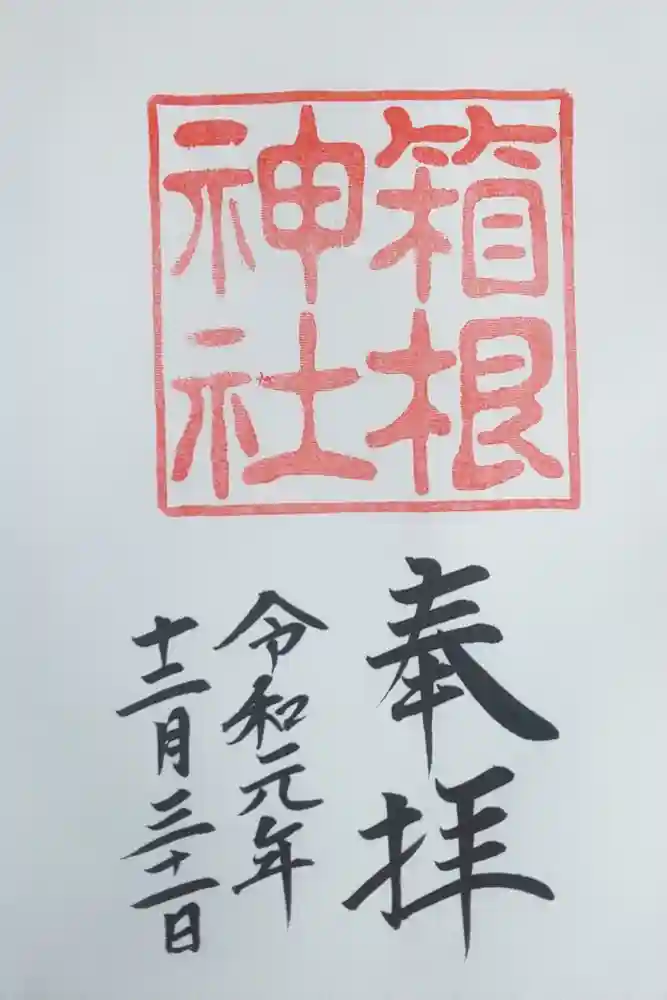 箱根
神社
奉拝
令和元年
十二月三十一日